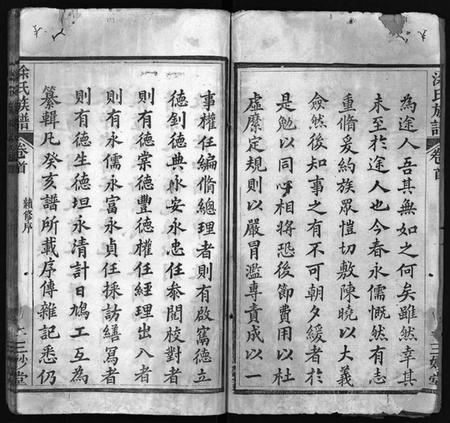 為途人吾其無如之何矣雖然幸其
未至於途人也今春永儒慨然有志
重脩爰約族眾愷切敷陳曉以大義
僉然後知事之有不可朝夕緩者於
是勉以同心相將恐後節費用以杜
虛糜定規則以嚴冒濫專責成以一
氏族譜
卷首
事權任編脩總理者則有啟富德立
德釗德典永安永忠任叅閱校對者
則有德崇德豐德權任經理出入者
則有永儒永富永貞任採訪繕寫者
則有德生德坦永清計日鳩工互為
纂輯凡癸亥譜所載序傳雜記悉仍
涂氏族譜
卷首
續修序